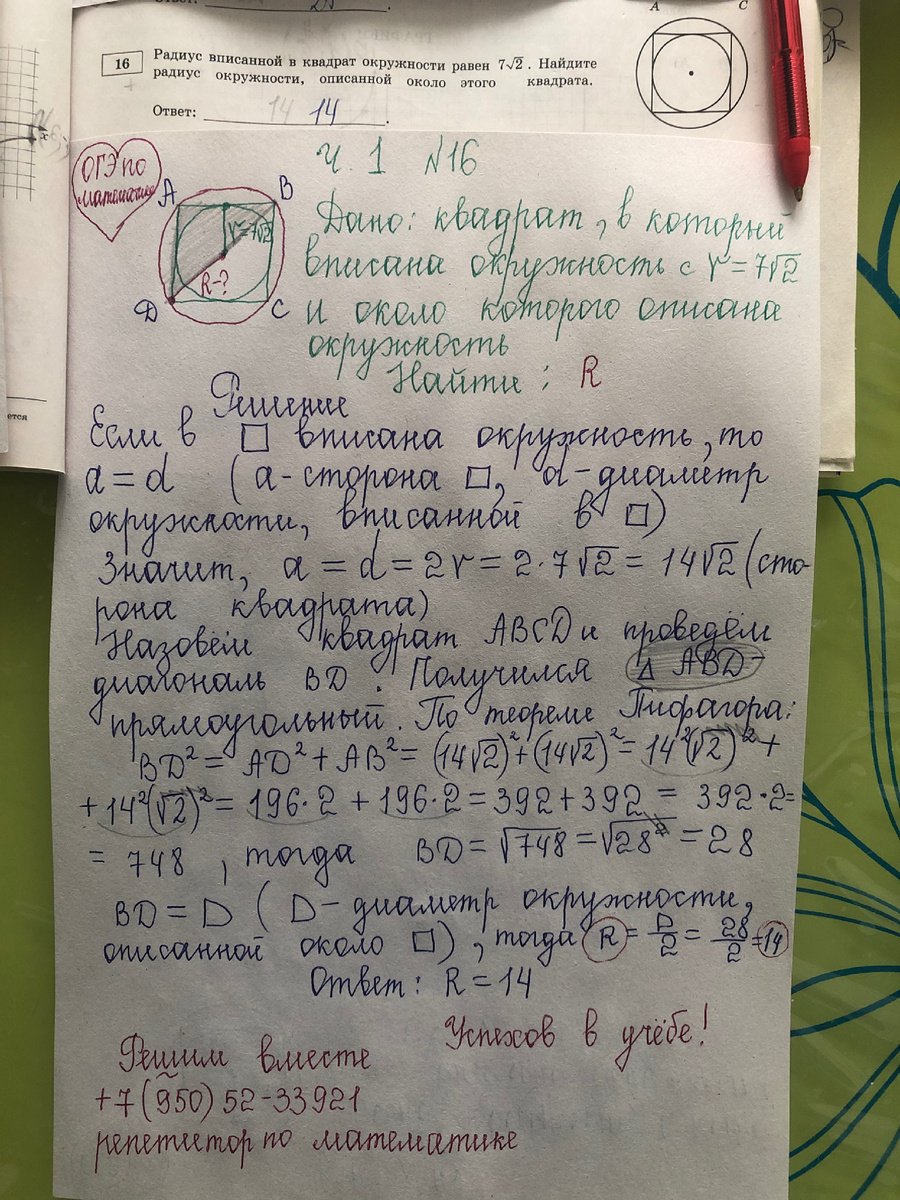 Ответ:
А С
16 Радиус вписанной в квадрат окружности равен 7√2 . Найдите
радиус окружности, описанной около этого квадрата.
Ответ: 14 14 .
ется
х
ОГЭ по
математике
Ч. 1 №16
А В
r=7√2
R-?
D C
Дано: квадрат, в который
вписана окружность с r=7√2
и около которого описана
окружность
Найти: R
Решение
Если в □ вписана окружность, то
a = d (a-сторона □, d-диаметр
окружности, вписанной в □)
Значит, a = d = 2r = 2·7√2 = 14√2 (сто-
рона квадрата)
Назовём квадрат ABCD и проведём
диагональ BD. Получился Δ ABD-
прямоугольный. По теореме Пифагора:
BD² = AD² + AB² = (14√2)²+(14√2)² = 14²(√2)² +
+ 14²(√2)² = 196·2 + 196·2 = 392+392 = 392·2=
= 748 , тогда BD = √748 = √28² = 28
BD = D (D-диаметр окружности,
описанной около □), тогда R = D/2 = 28/2 = 14
Ответ: R = 14
Успехов в учёбе!
Решим вместе
+7(950) 52-33921
репетитор по математике